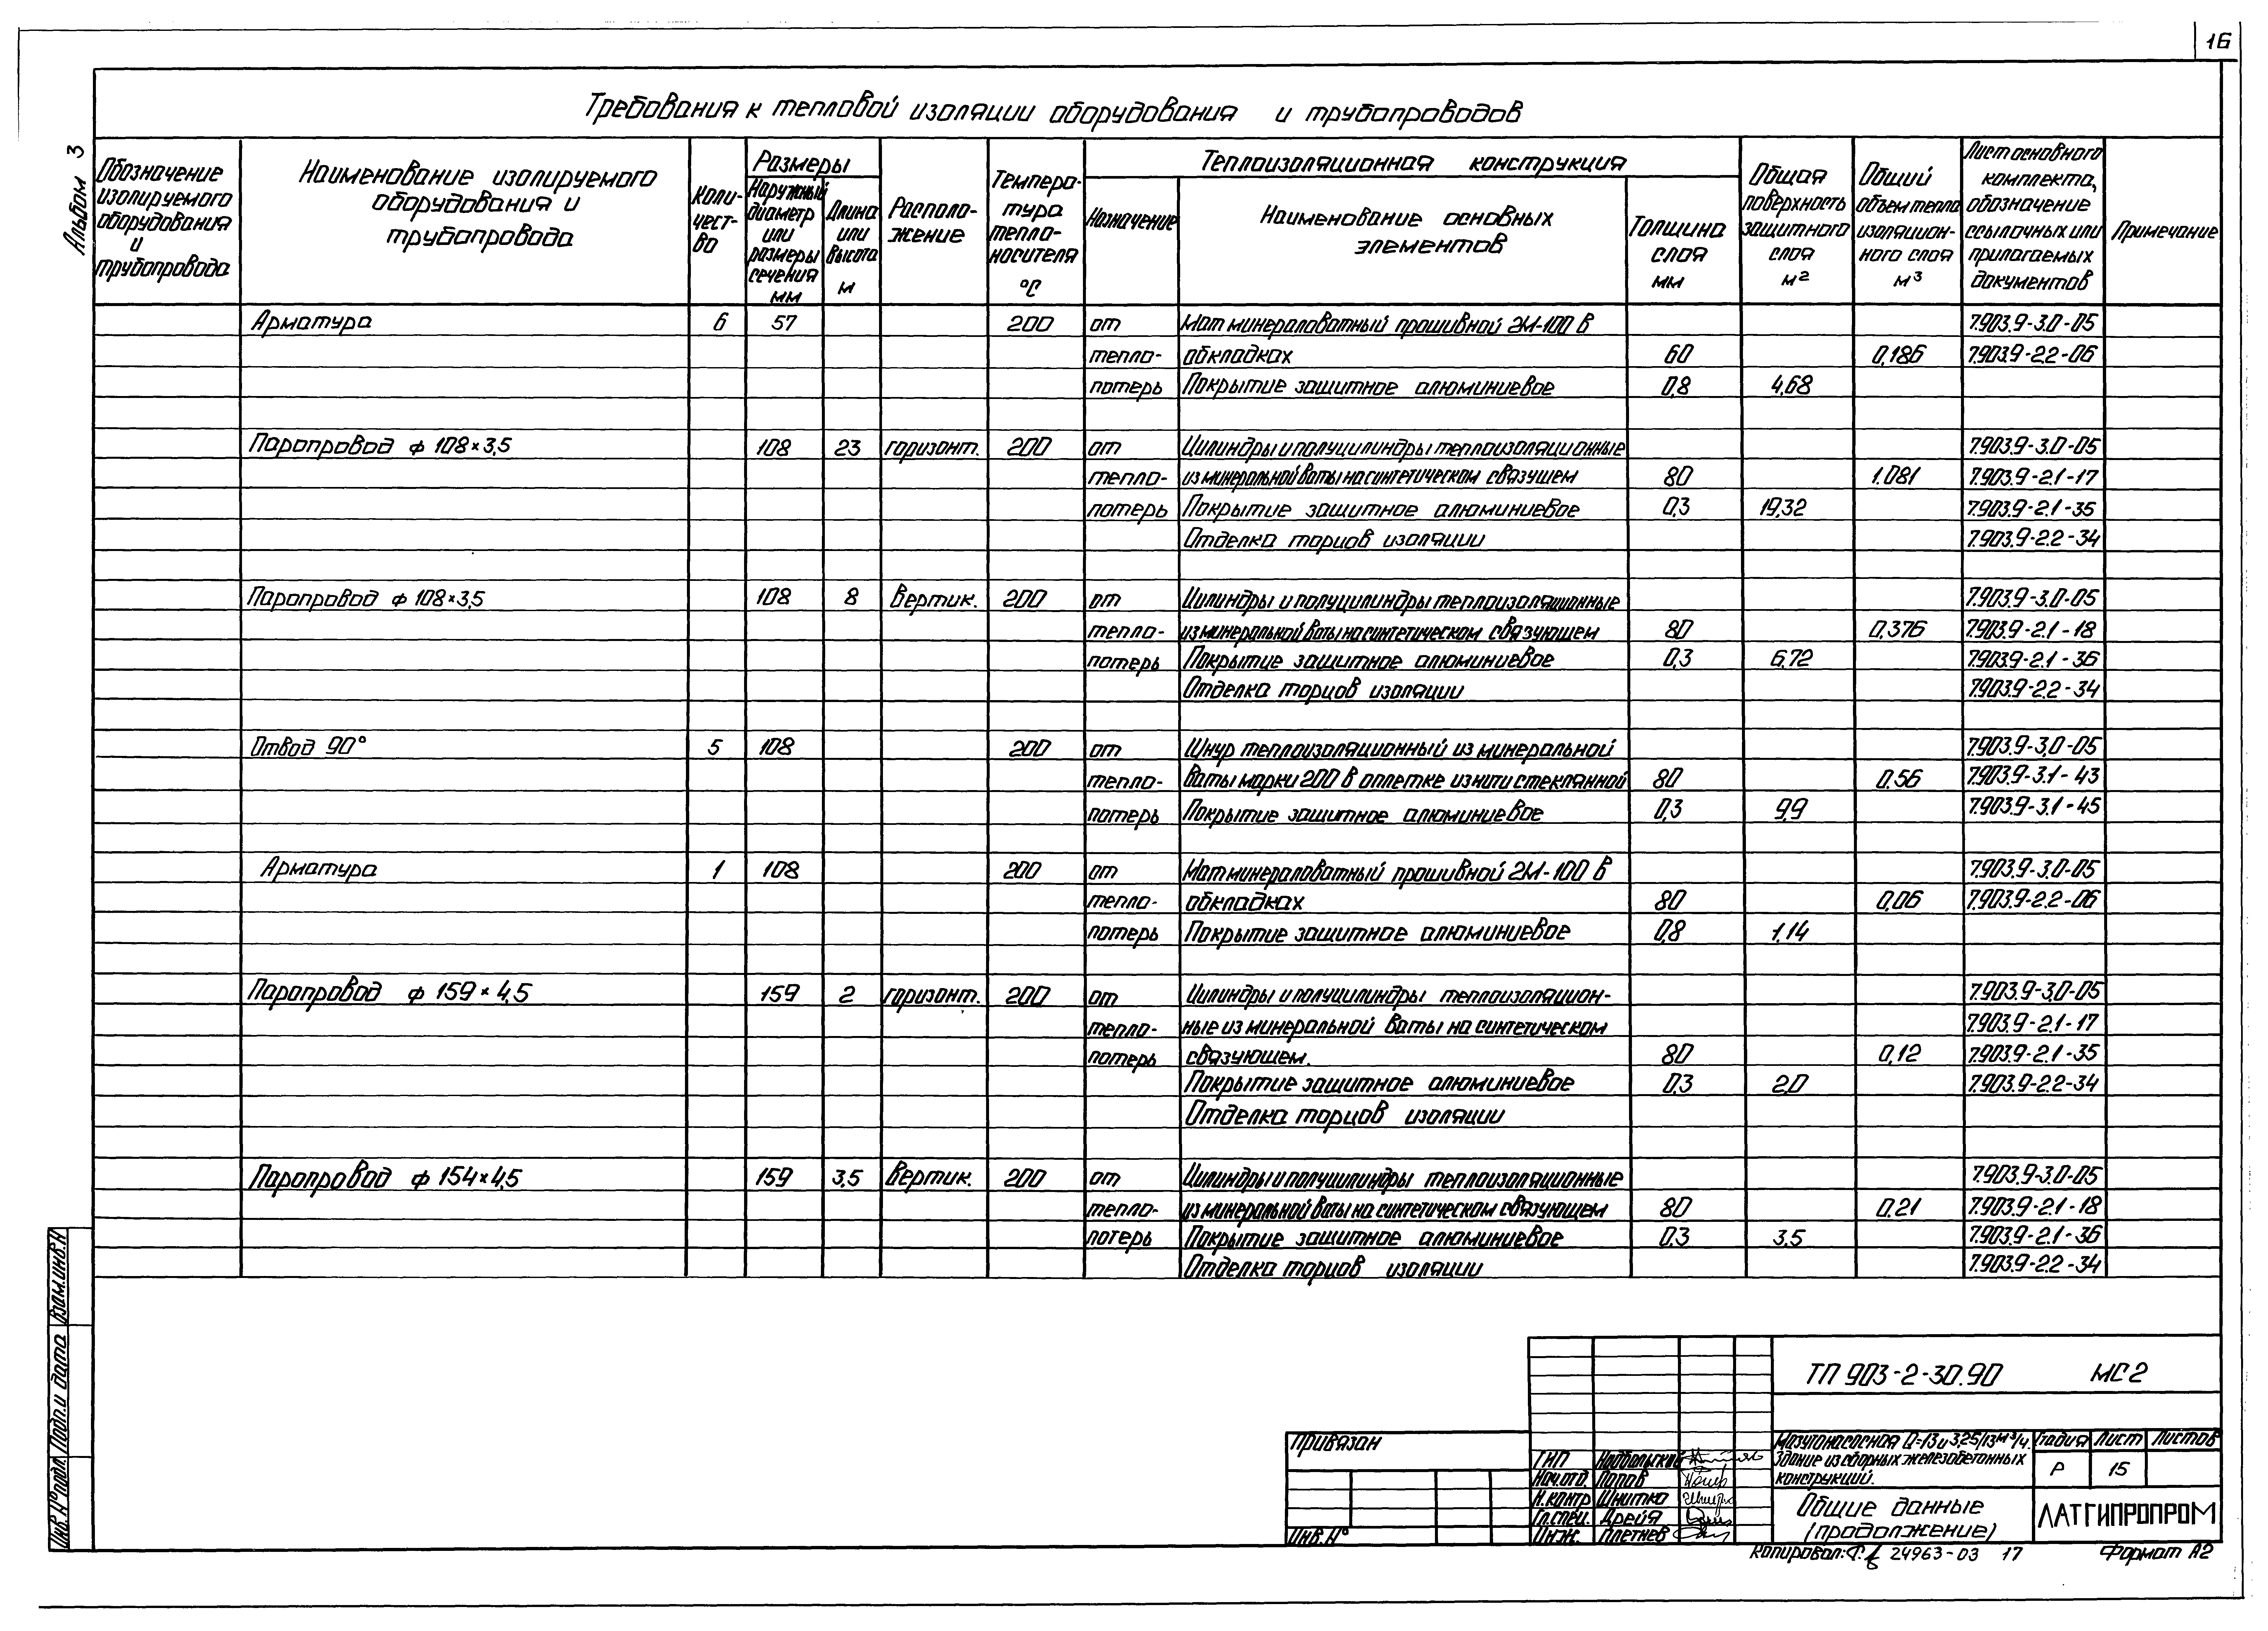 16
Альбом 3
Требования к тепловой изоляции оборудования и трубопроводов
Обозначение изолируемого оборудования и трубопровода
Наименование изолируемого оборудования и трубопровода
Коли-чест-во
Размеры
Наружный диаметр или размеры сечения мм
Длина или высота м
Располо-жение
Темпера-тура тепло-носителя °С
Теплоизоляционная конструкция
Назначение
Наименование основных элементов
Толщина слоя мм
Общая поверхность защитного слоя м²
Общий объем тепло изоляцион-ного слоя м³
Лист основного комплекта, обозначение ссылочных или прилагаемых документов
Примечание
Арматура 6 57 200 от Мат минераловатный прошивной 2М-100 в 7.903.9-3.0-05
тепло- обкладках 60 0,186 7.903.9-2.2-06
потерь Покрытие защитное алюминиевое 0,8 4,68
Паропровод ф 108×3,5 108 23 горизонт. 200 от Цилиндры и полуцилиндры теплоизоляционные 7.903.9-3.0-05
тепло- из минеральной ваты на синтетическом связущем 80 1.081 7.903.9-2.1-17
потерь Покрытие защитное алюминиевое 0,3 19,32 7.903.9-2.1-35
Отделка торцов изоляции 7.903.9-2.2-34
Паропровод ф 108×3,5 108 8 Вертик. 200 от Цилиндры и полуцилиндры теплоизоляционные 7.903.9-3.0-05
тепло- из минеральной ваты на синтетическом связующем 80 0,376 7.903.9-2.1-18
потерь Покрытие защитное алюминиевое 0,3 6,72 7.903.9-2.1-36
Отделка торцов изоляции 7.903.9-2.2-34
Отвод 90° 5 108 200 от Шнур теплоизоляционный из минеральной 7.903.9-3.0-05
тепло- ваты марки 200 в оплетке из нити стеклянной 80 0.56 7.903.9-3.1-43
потерь Покрытие защитное алюминиевое 0,3 9,9 7.903.9-3.1-45
Арматура 1 108 200 от Мат минераловатный прошивной 2М-100 в 7.903.9-3.0-05
тепло- обкладках 80 0,06 7.903.9-2.2-06
потерь Покрытие защитное алюминиевое 0,8 1,14
Паропровод ф 159×4,5 159 2 горизонт. 200 от Цилиндры и полуцилиндры теплоизоляцион- 7.903.9-3.0-05
тепло- ные из минеральной ваты на синтетическом 7.903.9-2.1-17
потерь связующем. 80 0,12 7.903.9-2.1-35
Покрытие защитное алюминиевое 0,3 2,0 7.903.9-2.2-34
Отделка торцов изоляции
Паропровод ф 154×4,5 159 3,5 Вертик. 200 от Цилиндры и полуцилиндры теплоизоляционные 7.903.9-3.0-05
тепло- из минеральной ваты на синтетическом связующем 80 0.21 7.903.9-2.1-18
потерь Покрытие защитное алюминиевое 0,3 3,5 7.903.9-2.1-36
Отделка торцов изоляции 7.903.9-2.2-34
Взам.инв.N
Подп. и дата
Инв.N°подл.
Привязан
Инв.N°
ГИП
Нач.отд. Попов
Н.контр Шнитко
Гл.спец. Дрейя
Инж. Плетнев
ТП 903-2-30.90 МС2
Мазутонасосная Q=13 и 3,25/13 м³/ч.
Здание из сборных железобетонных
конструкций.
Стадия Лист Листов
Р 15
Общие данные
(продолжение)
ЛАТГИПРОПРОМ
Копировал: 24963-03 17 Формат А2